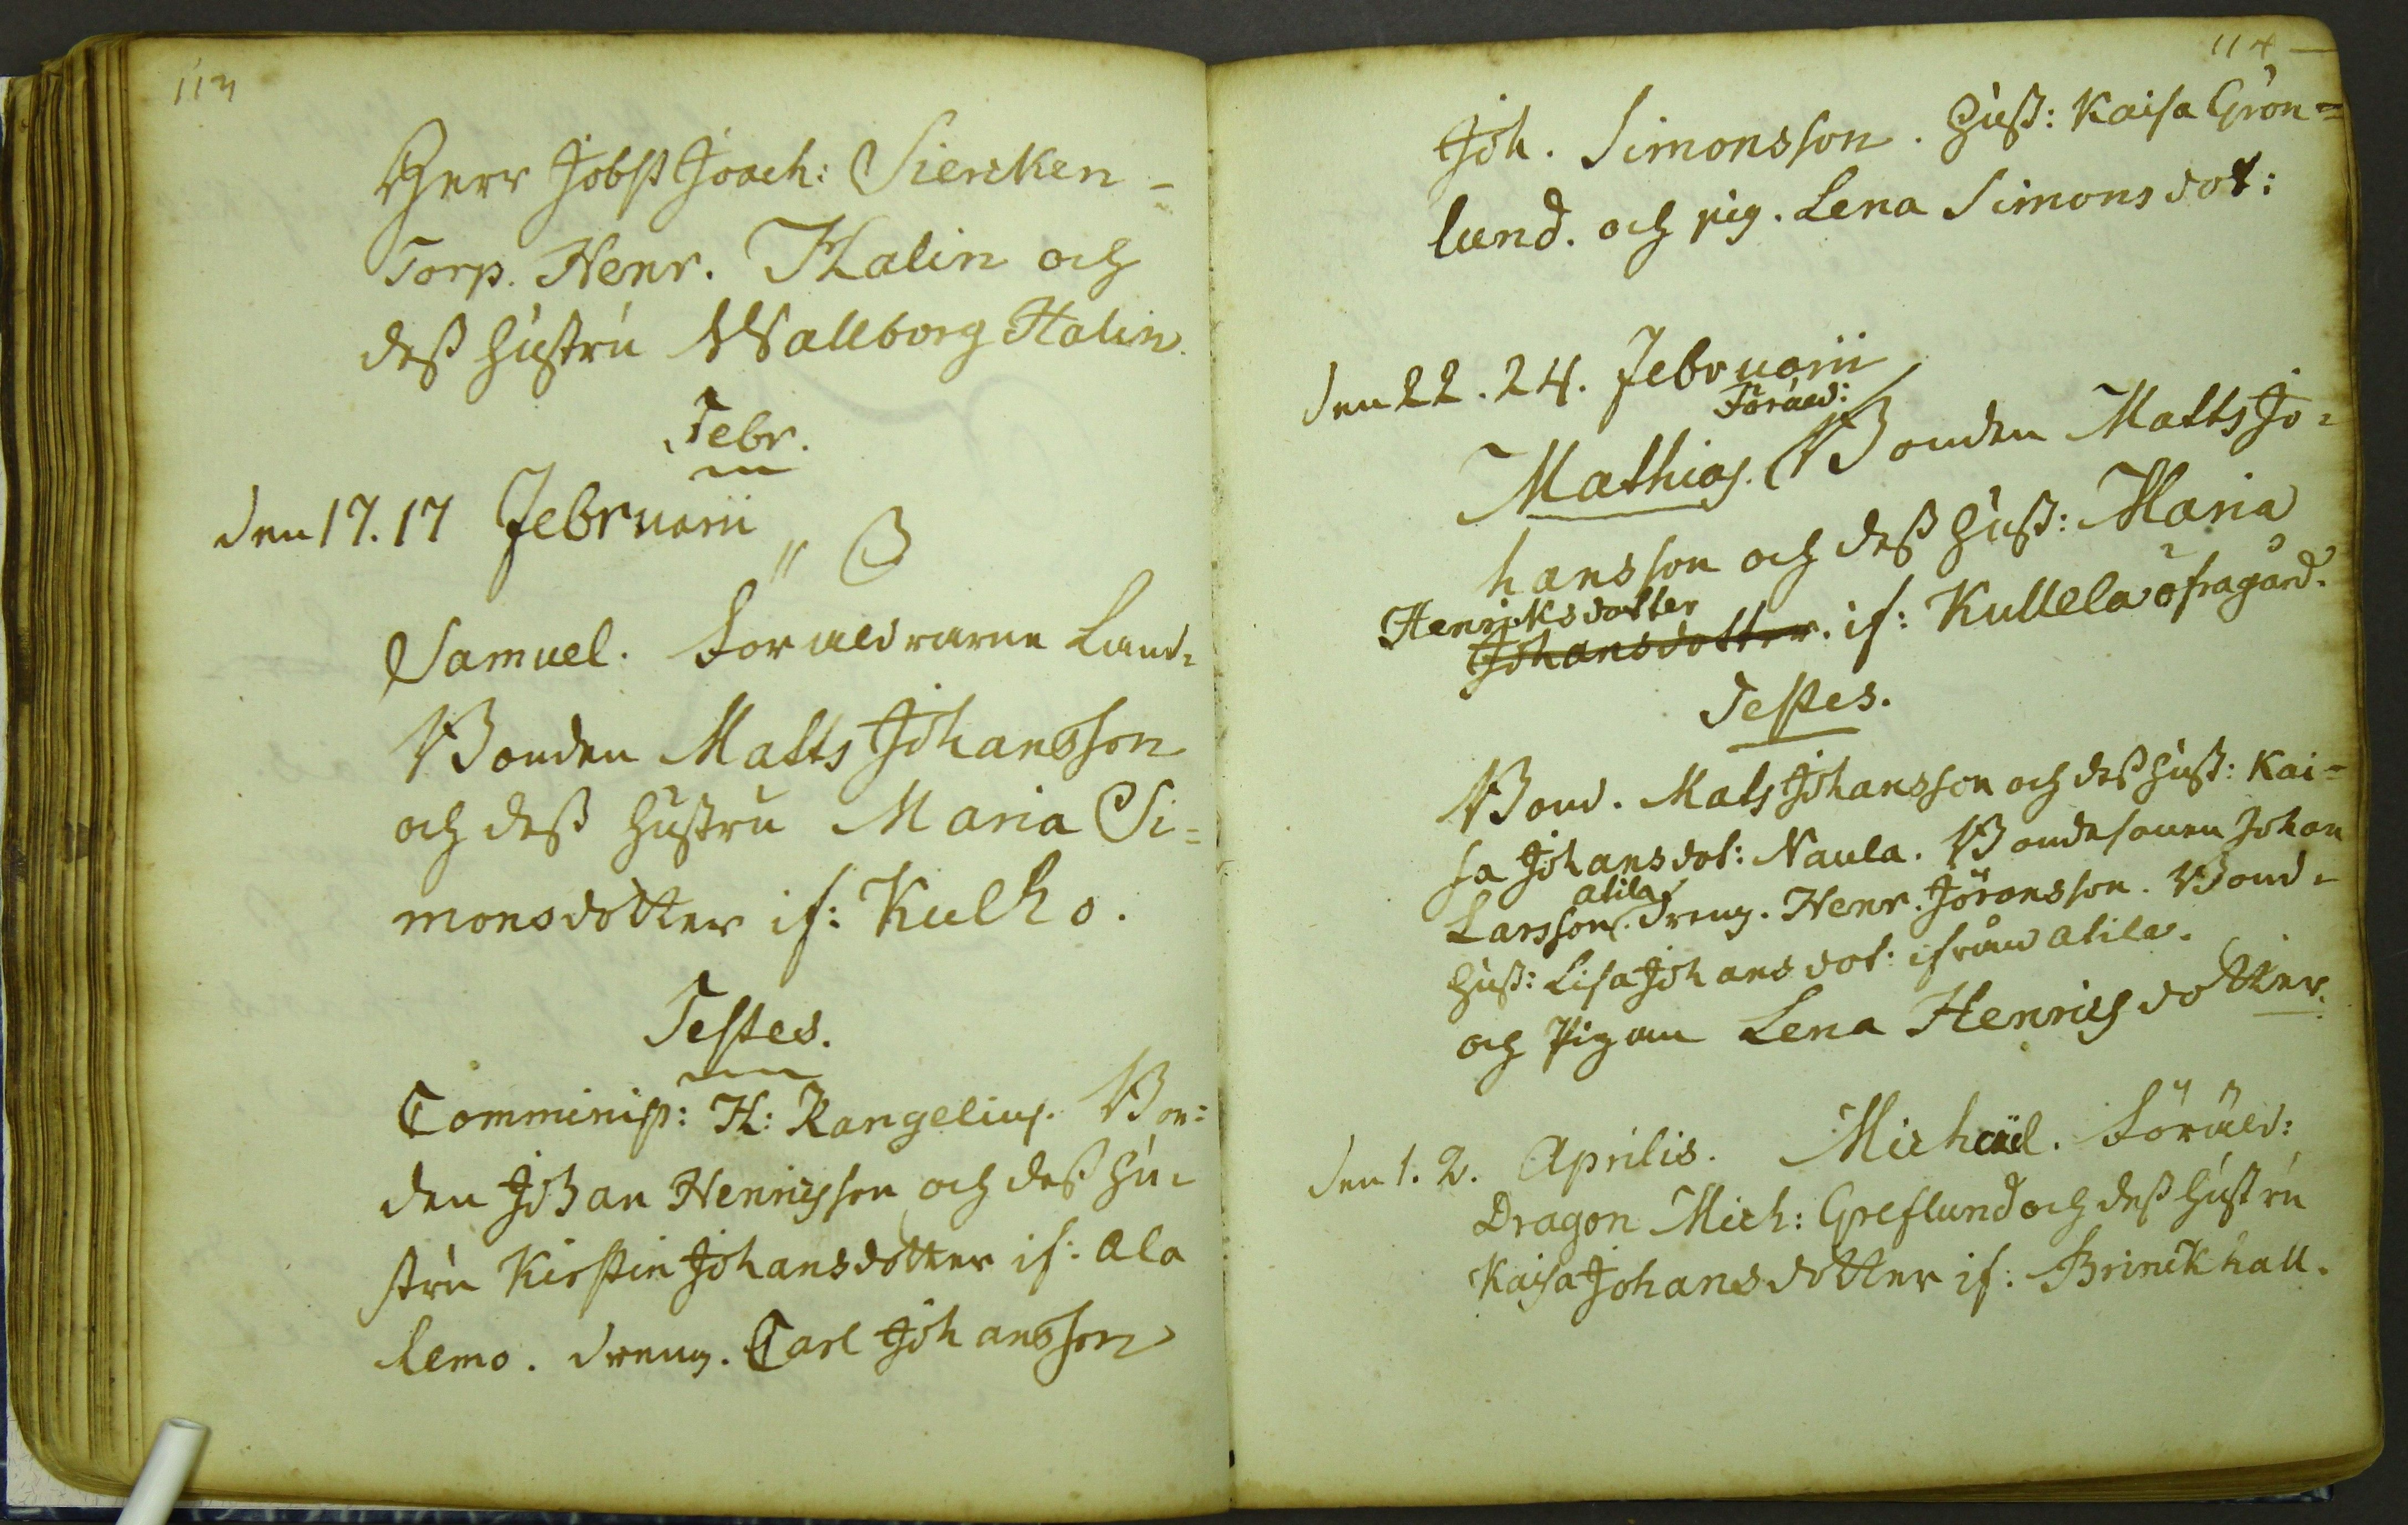 113
Herr Jobst Joach: Siercken-
Torp. Henr. Thalin och
dess hustru Wallborg Thalin.
Febr.
den 17. 17 Februarii
Samuel. Föräldrarne Land-
Bonden Matts Johansson
och dess hustru Maria Si=
monsdotter if: Kulho.
Testes.
Comminist: H: Rangelius. Bon:
den Johan Henricsson och dess hu-
stru Kirstin Johansdotter if: Ala
Lemo. dreng. Carl Johansson
114
Joh. Simonsson. Hust: Kaisa Grön=
lund. och pig. Lena Simonsdot:
den 22. 24. Februarii
Föräld:
Mathias. Bonden Matts Jo-
hansson och dess hust: Maria
Henricksdotter
Johansdotter. if: Kullela öfragård.
Testes.
Bond. Mats Johansson och dess hust: Kai=
sa Johansdot: Naula. Bondesonen Johan
atila
Larsson. dreng. Henr. Jöransson. Bond-
hust: Lisa Johansdot: ifrån atila.
och Pigan Lena Henrichsdotter.
den 1. 2. Aprilis. Michaël. Föräld:
Dragon Mich: Greflund och dess hustru
Kaisa Johansdotter if: Brinckhall.